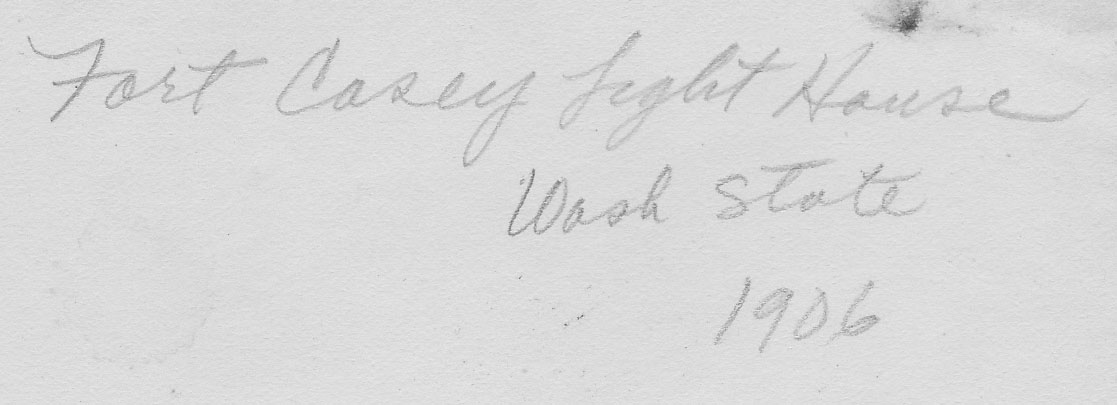 Fort Casey Light House
Wash State
1906